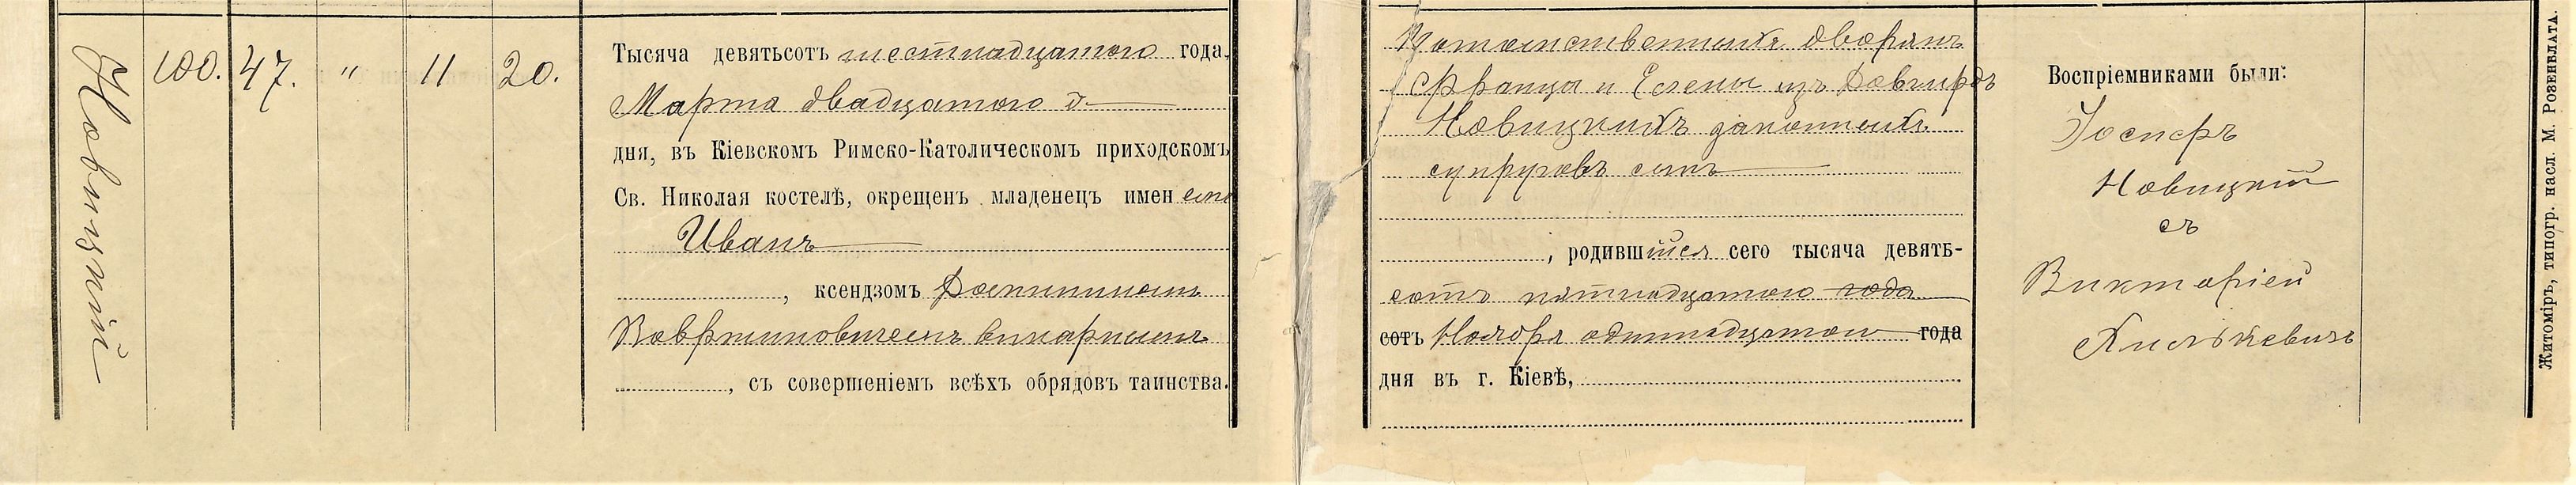 Новицкій
100. 47. " 11 20.
Тысяча девятьсотъ шестнадцатого года,
Марта двадцатого д
дня, въ Кіевскомъ Римско-Католическомъ приходскомъ
Св. Николая костелѣ, окрещенъ младенецъ именемъ
Иванъ
, ксендзомъ
викарнымъ
, съ совершеніемъ всѣхъ обрядовъ таинства.
Потомственныхъ дворянъ
Франца и Елены изъ Довгирдъ
Новицкихъ законныхъ
супруговъ сынъ
, родившійся сего тысяча девять-
сотъ пятнадцатого года
сотъ Ноября одиннадцатого года
дня въ г. Кіевѣ,
Воспріемниками были:
Іосифъ
Новицкій
съ
Викторіей
Житоміръ, типогр. насл. М. Розенблата.